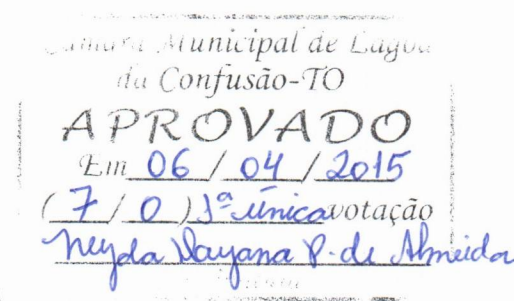 Câmara Municipal de Lagoa
da Confusão-TO
APROVADO
Em 06 / 04 / 2015
( 7 / 0 ) 1ª única votação
Neyda Dayana P. de Almeida